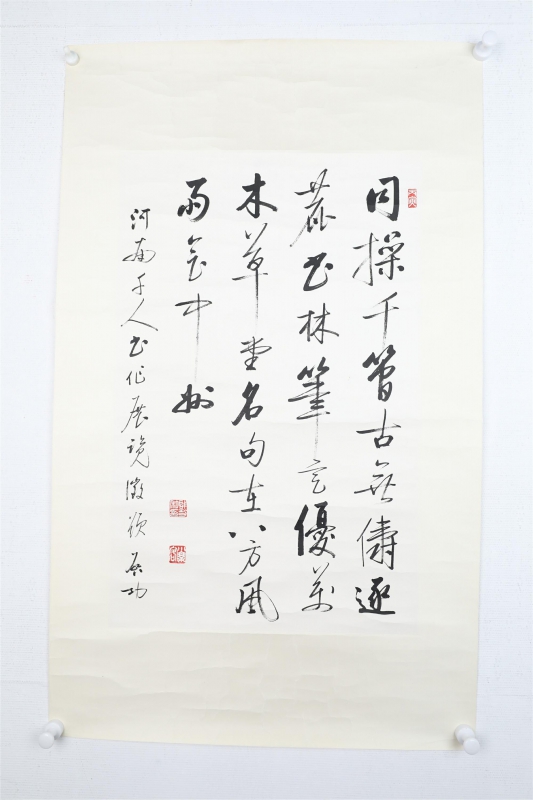 同操千管古無儔逐
鹿書林筆意優萬
木草堂名句在八方風
雨會中州
河南千人書作展覽徵題 啟功